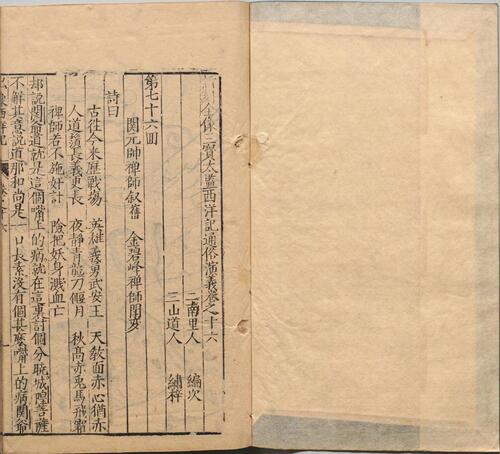 全像三寶太監西洋記通俗演義卷之十六
二南里人 編次
三山道人 繡梓
第七十六回
關元帥禪師敘舊 金碧峰禪師鬪変
詩曰
古徃今來歷戰塲 英雄義勇武安王 天教面赤心猶赤
人道鬚長義更長 夜靜青龍刀偃月 秋高赤兎馬飛霜
禪師若不施奸計 險把妖身濺血亡
却說關爺道就是這個嘴上的病就在這裏討個分曉城隍菩薩
不解其意說道那和尚是一口長素沒有個甚麽嘴上的病關爺
西洋記